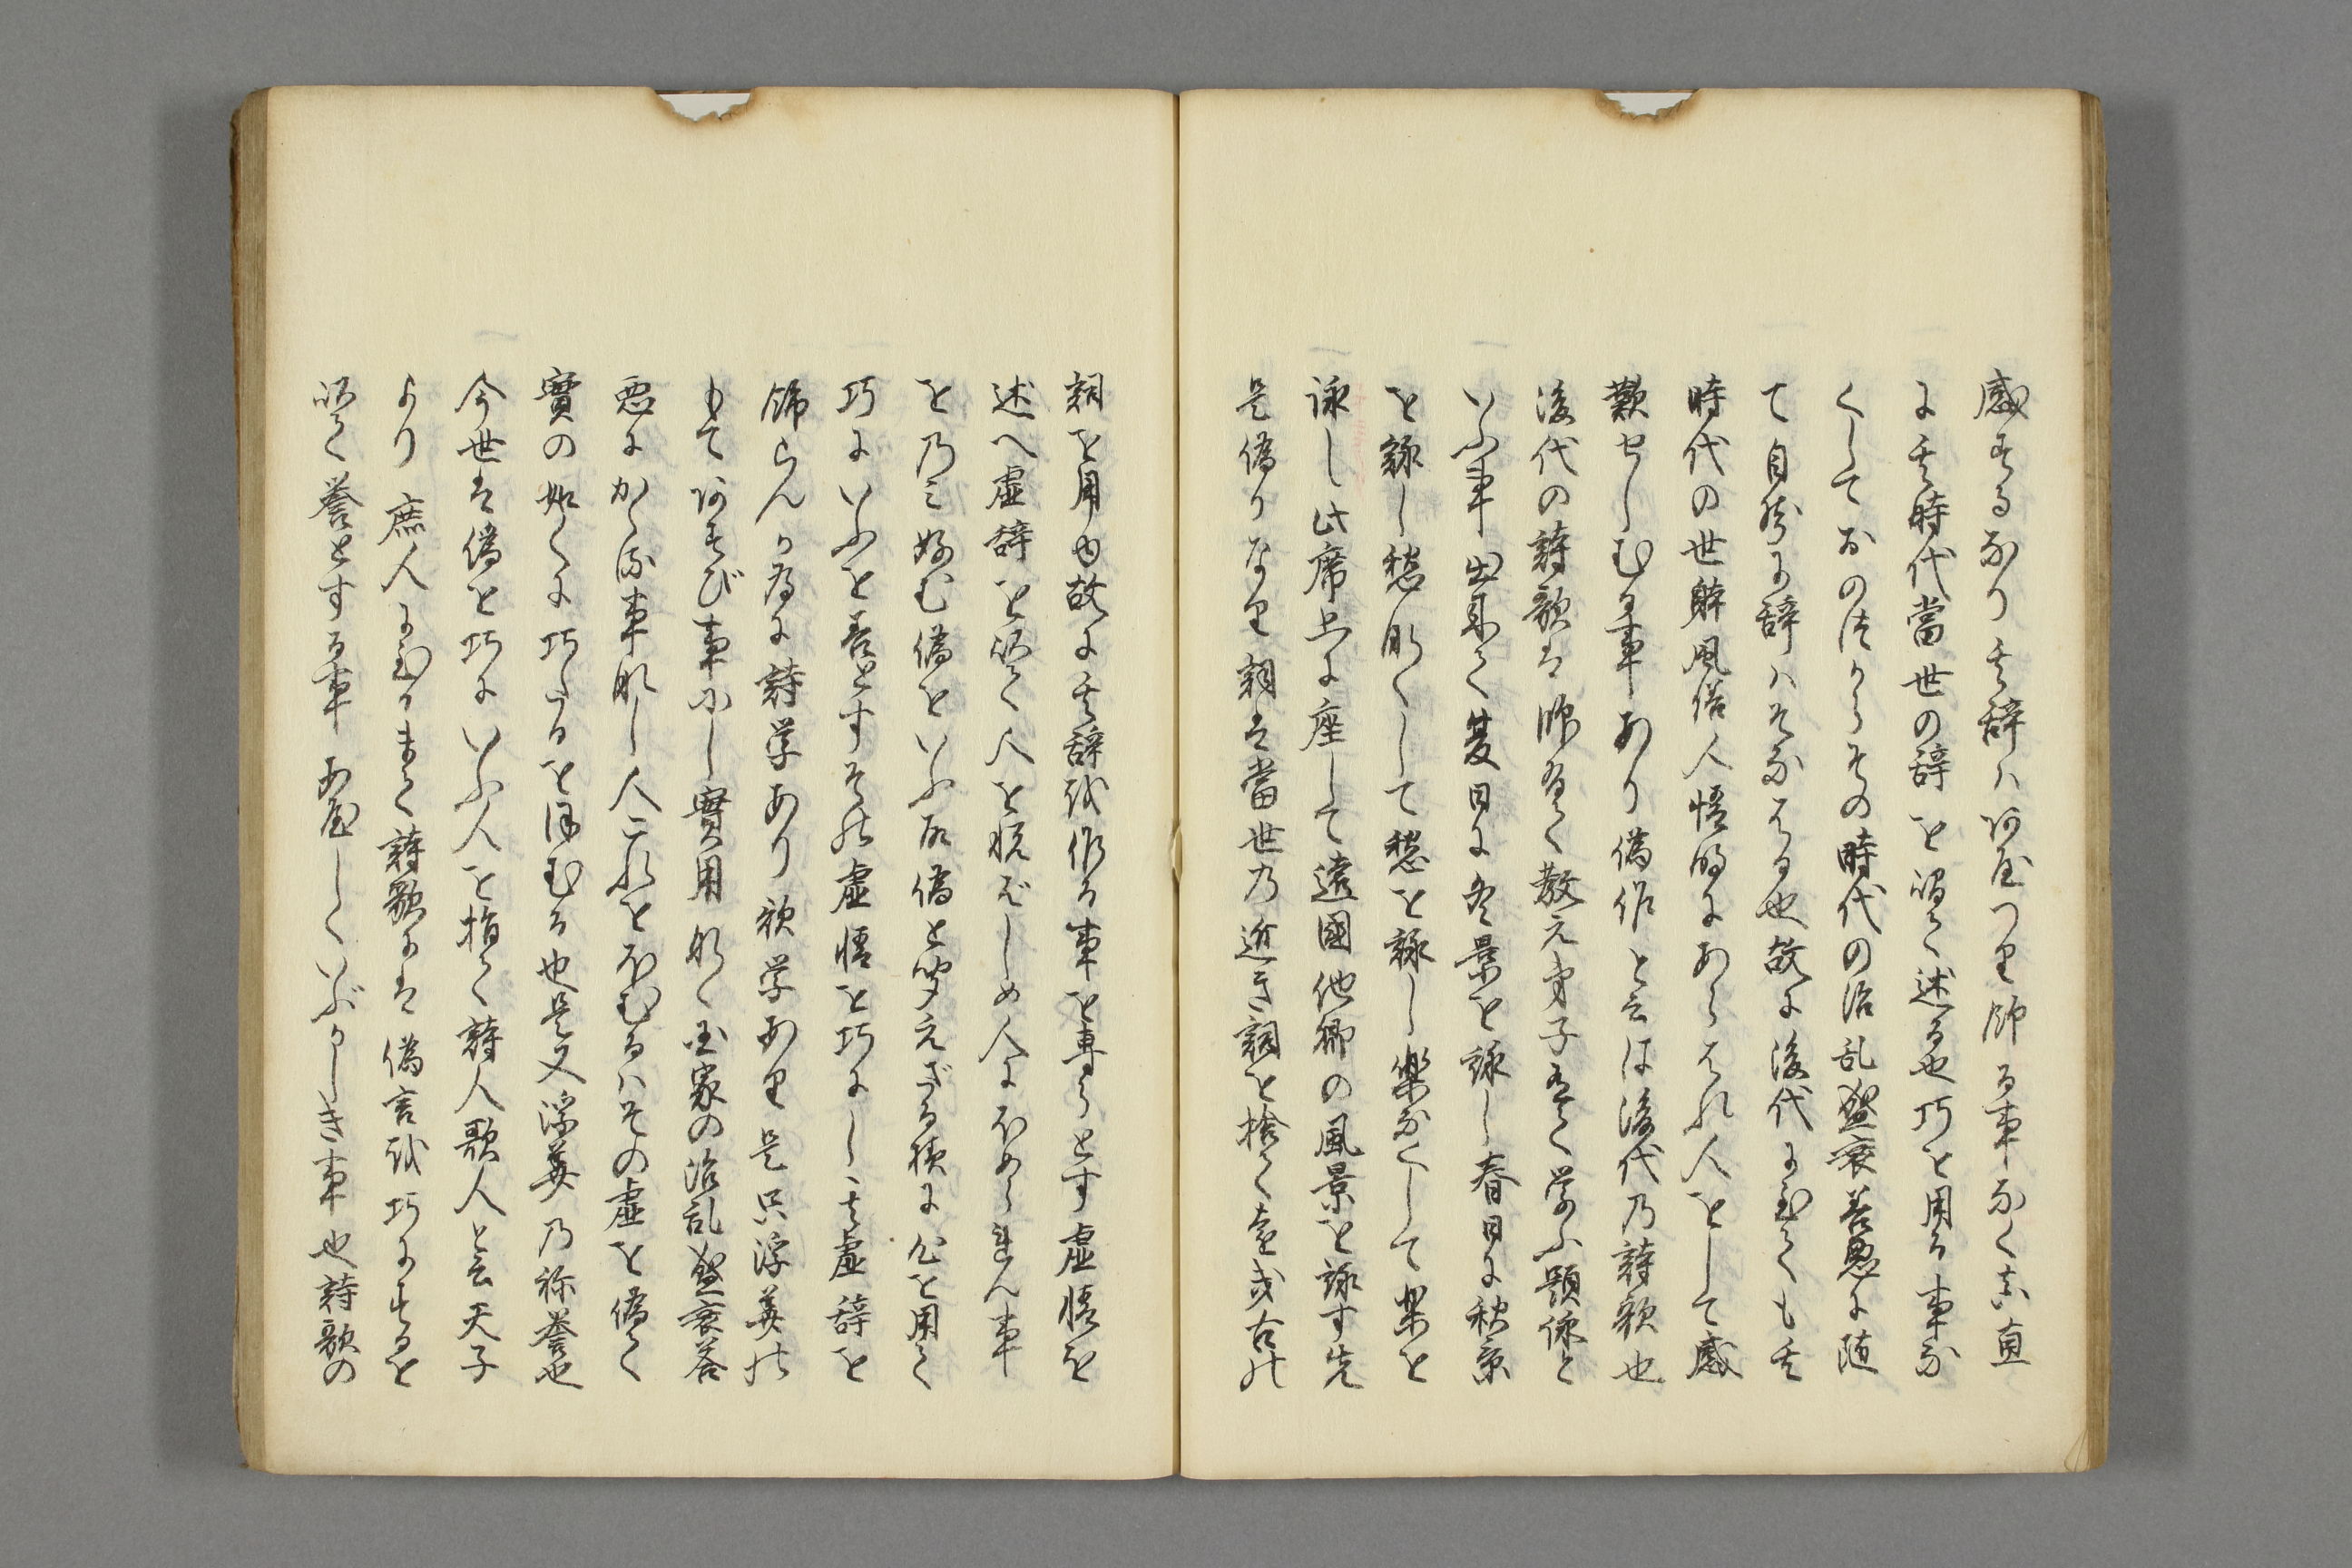 感ずるなり其辞ハいつはり飾る事なく真直
に其時代當世の辞を以て述る也巧を用る事な
くしておのづからその時代の治乱盛衰善悪に随
て自然に辞ハそなはる也故に後代に至ても其
時代の世躰風俗人情明にあらはれ人をして感
歎せしむる事あり偽作と云は後代乃詩歌也
後代の詩歌は師有て教え弟子有て学ふ題詠と
いふ事出来て夏日に冬景を詠し春日に秋景
を詠し愁肌くして愁を詠し楽なくして楽を
詠し此席上に座して遠國他郷の風景を詠す先
是偽りなり詞は當世乃近き詞を捨て遠き古の
詞を用ゆ故に其辞を作る事を専らとす虚情を
述へ虚辞を以て人を悦ばしめ人にほめられん事
を乃ミ好む偽をいふ而偽と聞えざる様に心を用て
巧にいふを善とすその虚情を巧にし其虚辞を
飾らんか為に詩学あり歌学あり是只浮華の
もてあそび事にし實用なく国家の治乱盛衰善
悪にかゝる事なし人これをほむるハその虚を偽て
實の如くに巧たるを誉むる也是又浮華乃称誉也
今世は偽を巧にいふ人を指て詩人歌人と云天子
より庶人に至るまて詩歌には偽言を巧にするを
以て誉とする事あやしくいぶかしき事也詩歌の